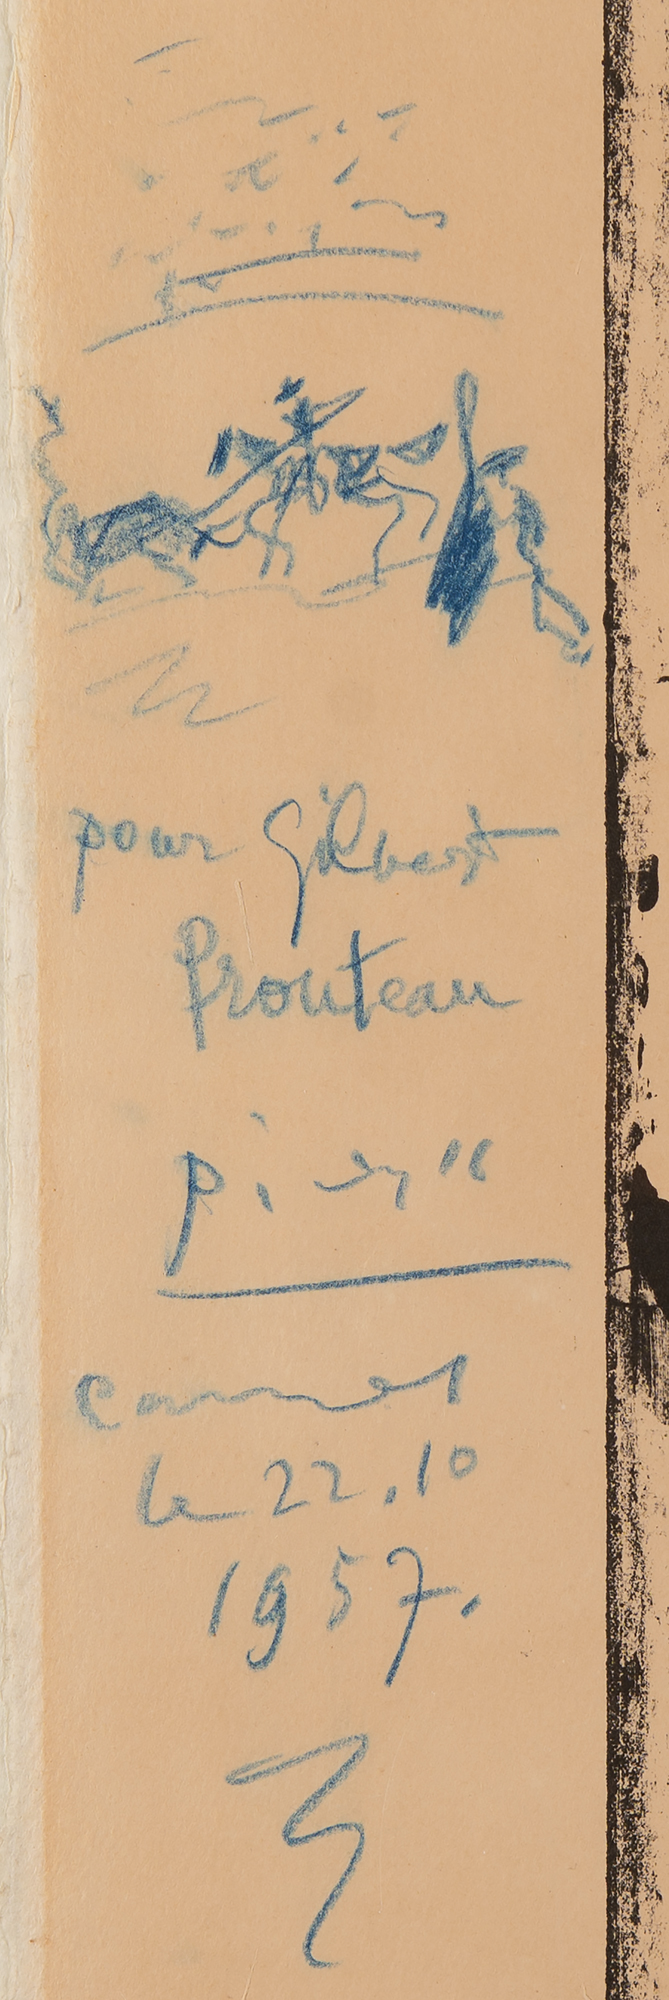 pour Gilbert
Prouteau
Cannes
le 22.10
1957.